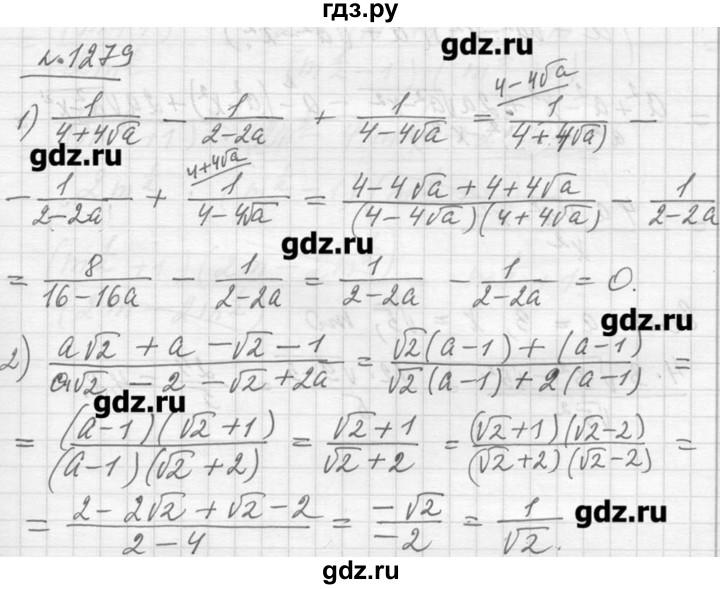 гдз.ру
№1279
gdz.ru
1) 1/(4+4√a) − 1/(2−2a) + 1/(4−4√a) = (4−4√a 1)/(4+4√a) −
gdz.ru
− 1/(2−2a) + (4+4√a 1)/(4−4√a) = (4−4√a+4+4√a)/((4−4√a)(4+4√a)) − 1/(2−2a)
gdz.ru
= 8/(16−16a) − 1/(2−2a) = 1/(2−2a) − 1/(2−2a) = 0.
gdz.ru
2) (a√2 + a − √2 − 1)/(a√2 − 2 − √2 + 2a) = (√2(a−1) + (a−1))/(√2(a−1) + 2(a−1)) =
gdz.ru
= ((a−1)(√2+1))/((a−1)(√2+2)) = (√2+1)/(√2+2) = ((√2+1)(√2−2))/((√2+2)(√2−2)) =
= (2−2√2+√2−2)/(2−4) = −√2/−2 = 1/√2.
gdz.ru
gdz.ru